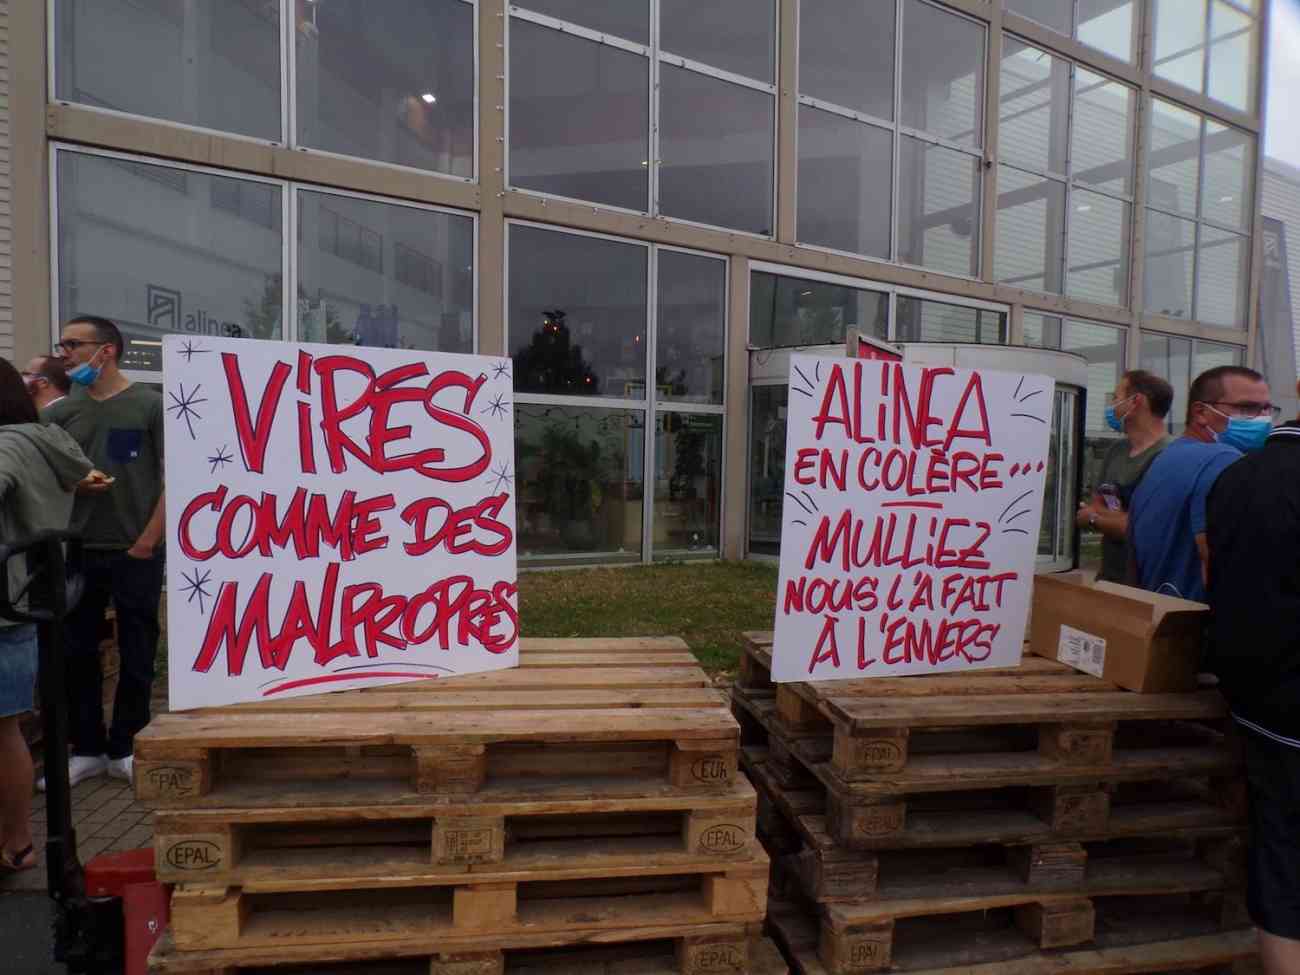 alinea
VIRÉS
COMME DES
MALPROPRES
ALINEA
EN COLÈRE...
MULLIEZ
NOUS L'A FAIT
À L'ENVERS
EPAL
EPAL
EPAL
EPAL
EPAL
EPAL
EPAL